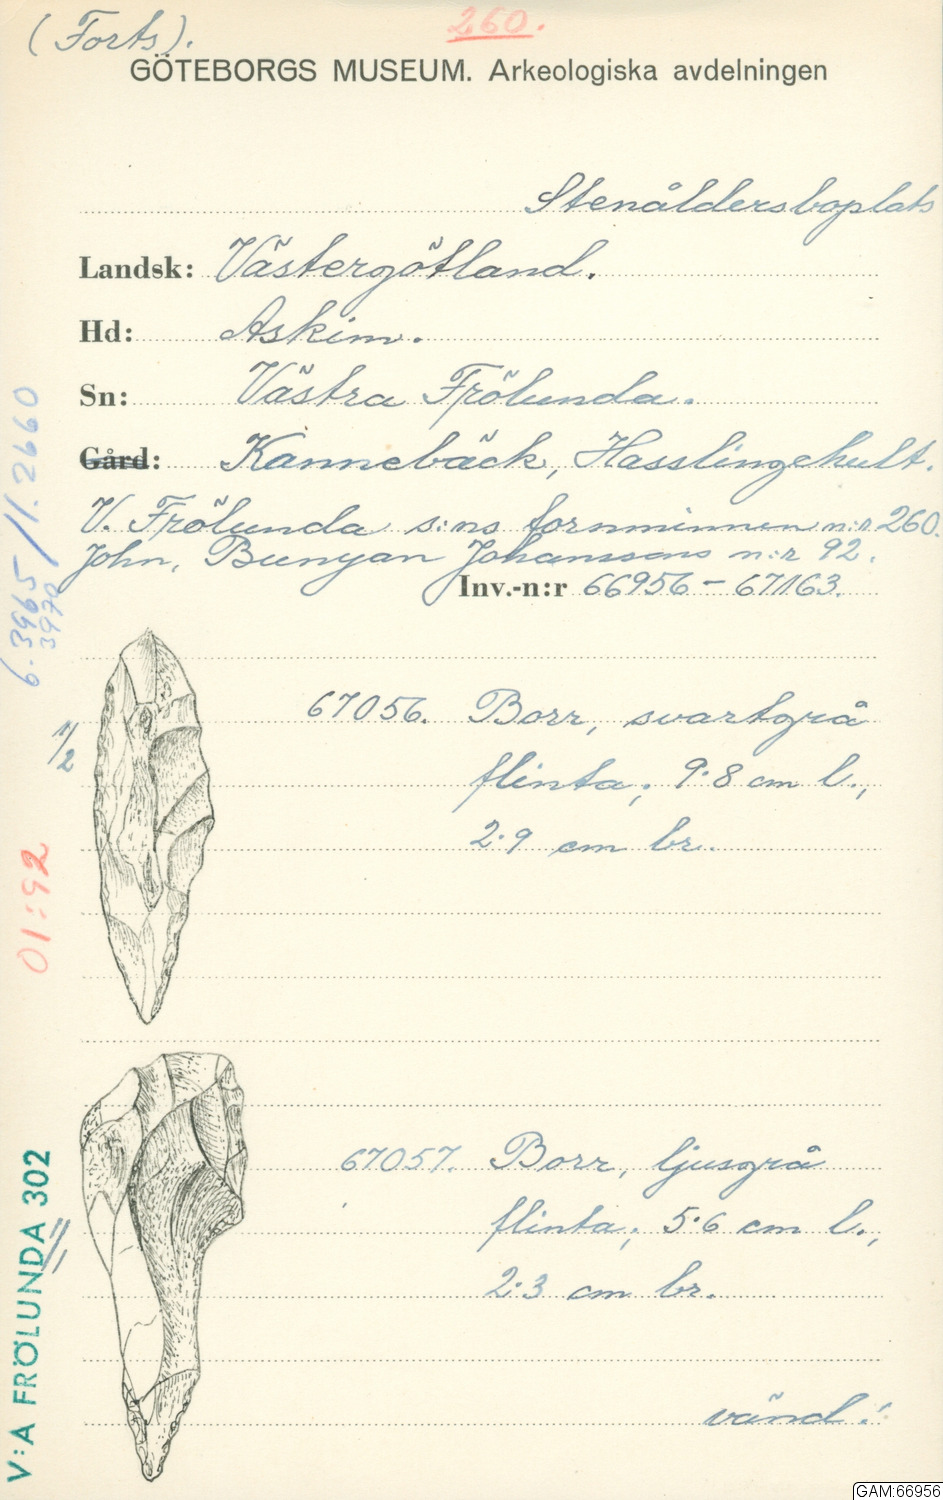 (Forts).
260.
GÖTEBORGS MUSEUM. Arkeologiska avdelningen
Stenåldersboplats
Landsk: Västergötland.
Hd: Askim.
Sn: Västra Frölunda.
Gård: Kannebäck, Hasslingehult.
V. Frölunda s:ns fornminnen n:r 260.
John, Bunyan Johanssons n:r 92.
Inv.-n:r 66956 – 67163.
6.3965/1.2660
3970
1/2
67056. Borr, svartgrå
flinta; 9·8 cm l.,
2·9 cm br.
01:92
67057. Borr, ljusgrå
flinta; 5·6 cm l.,
2·3 cm br.
V:A FRÖLUNDA 302
vänd!
GAM:66956